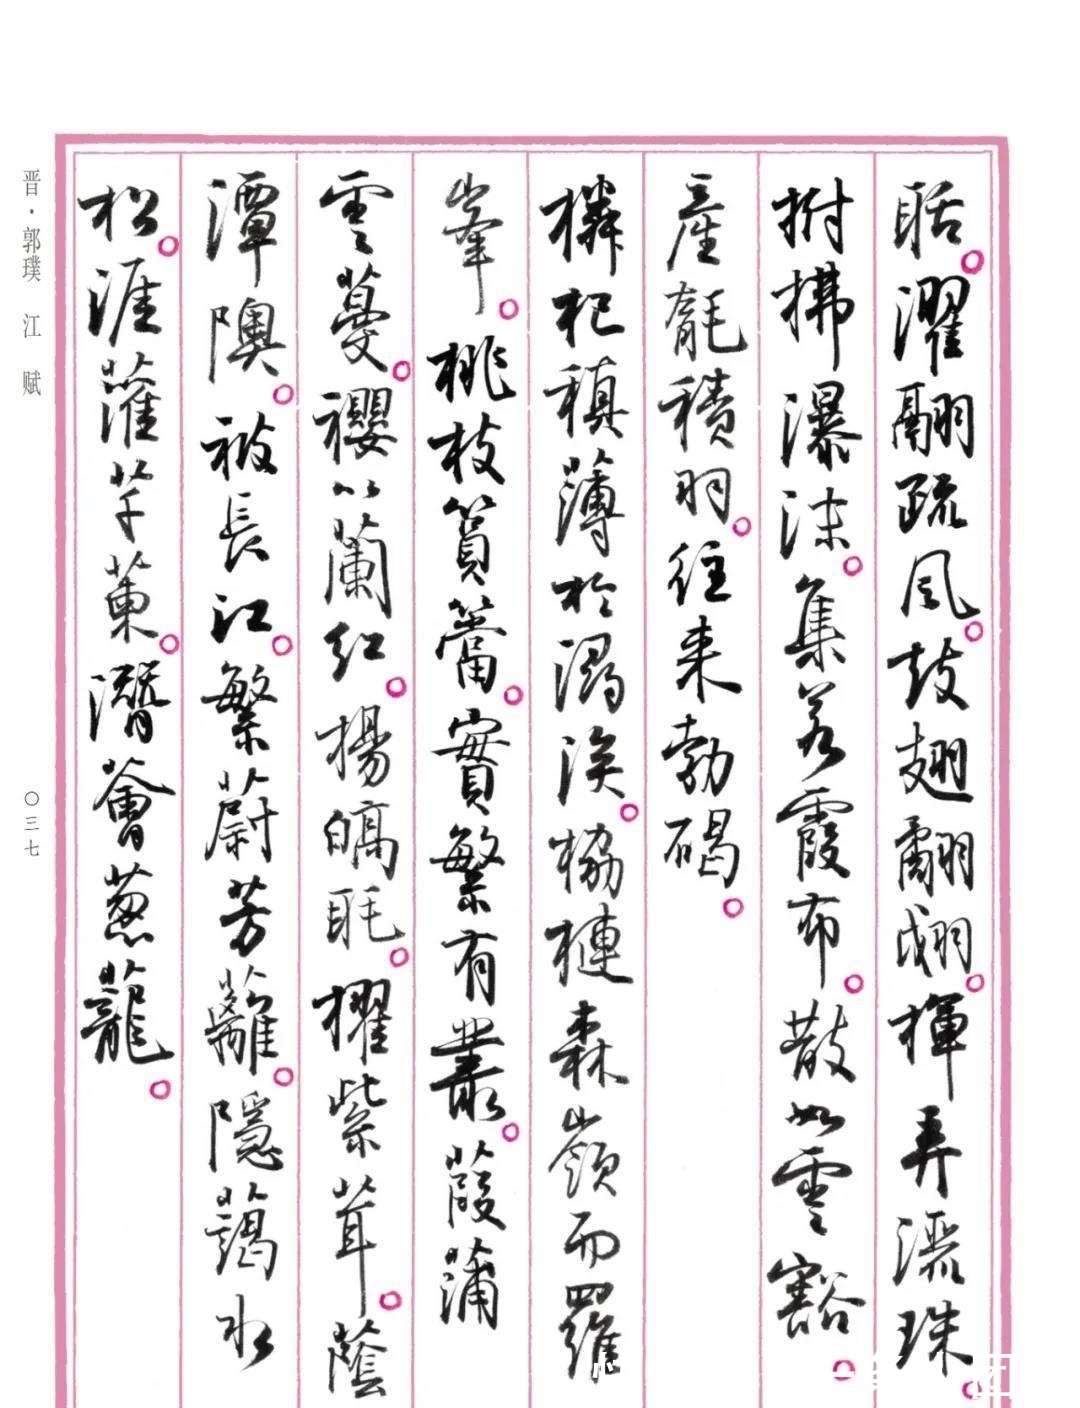 聒。濯翮疏風。鼓翅翻。揮弄灑珠。
拊拂瀑沫。集若霞布。散如雲豁。
產毻積羽。往來勃碣。
橉杞稹薄於潯涘。栛槤森嶺而羅
峯。桃枝篔簹。實繁有叢。葭蒲
雲蔓。櫻以蘭紅。揚皜毦。擢紫茸。蔭
潭隩。被長江。繁蔚芳蘺。隱藹水
松。涯灌芊萰。潛薈葱蘢。
晋·郭璞 江赋
〇三七